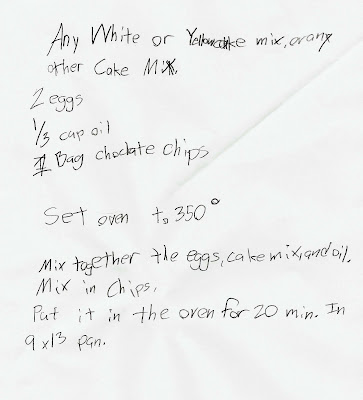 Any White or Yellowcake mix, or any
other Cake Mix.
2 eggs
1/3 cap oil
1 Bag choclate Chips
Set oven to 350°
Mix together the eggs, cake mix, and oil.
Mix in Chips.
Put it in the oven for 20 min. In
9x13 pan.